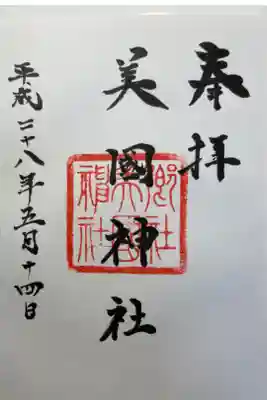 奉拝
美國神社
平成二十八年五月十四日